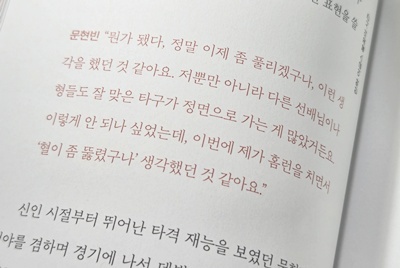 표현을 쓸
문현빈 "뭔가 됐다, 정말 이제 좀 풀리겠구나, 이런 생
각을 했던 것 같아요. 저뿐만 아니라 다른 선배님이나
형들도 잘 맞은 타구가 정면으로 가는 게 많았거든요
이렇게 안 되나 싶었는데, 이번에 제가 홈런을 치면서
'혈이 좀 뚫렸구나' 생각했던 것 같아요."
신인 시절부터 뛰어난 타격 재능을 보였던
야를 겸하며 경기에 나서